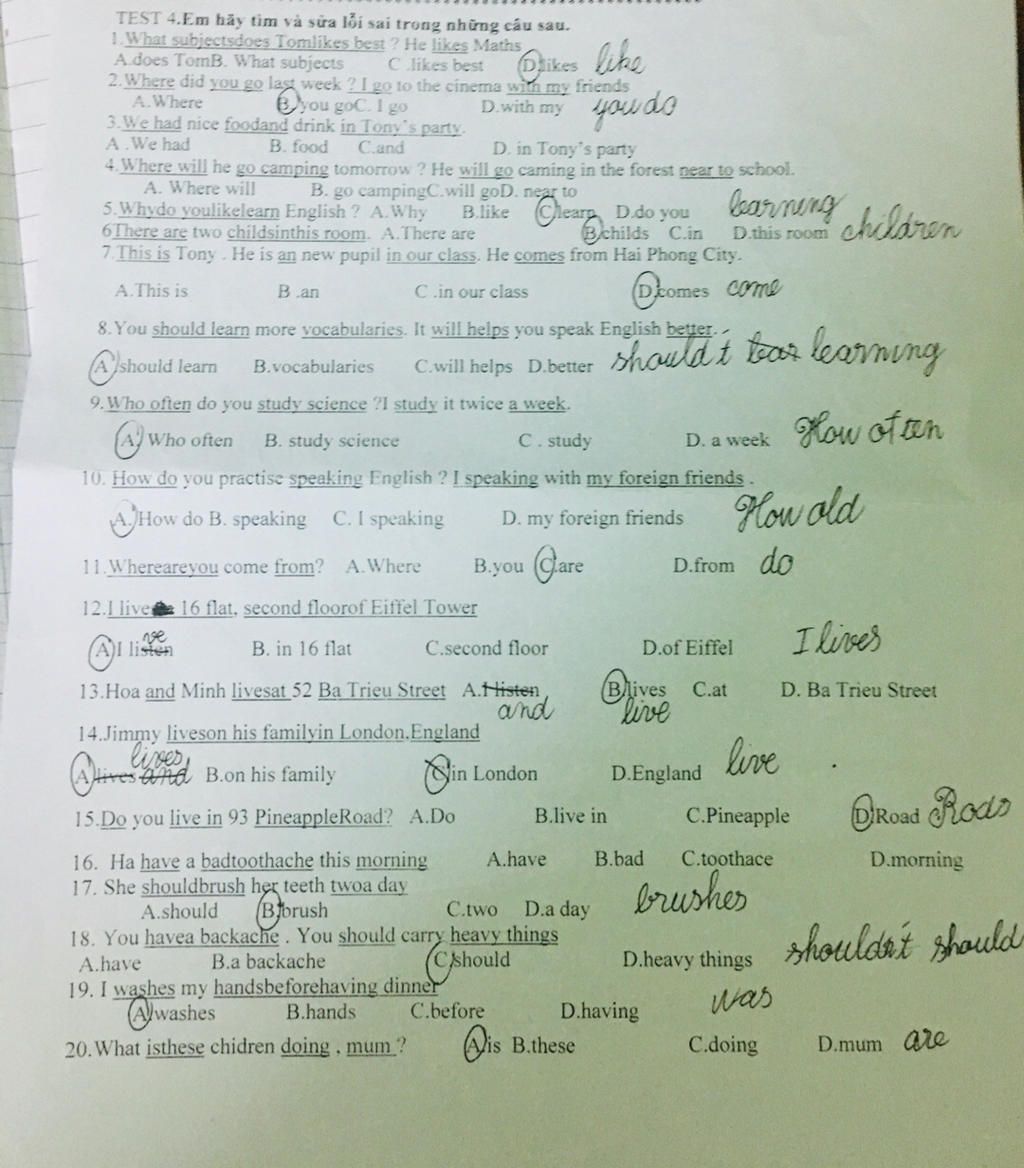 TEST 4.Em hãy tìm và sửa lỗi sai trong những câu sau.
1.What subjectsdoes Tomlikes best ? He likes Maths
A.does TomB. What subjects C .likes best D.likes like
2.Where did you go last week ? I go to the cinema with my friends
A.Where B. you goC. I go D.with my you do
3.We had nice foodand drink in Tony's party.
A .We had B. food C.and D. in Tony's party
4.Where will he go camping tomorrow ? He will go caming in the forest near to school.
A. Where will B. go campingC.will goD. near to
5.Whydo youlikelearn English ? A.Why B.like C.learn D.do you learning
6There are two childsinthis room. A.There are B.childs C.in D.this room children
7.This is Tony . He is an new pupil in our class. He comes from Hai Phong City.
A.This is B .an C .in our class D.comes come
8.You should learn more vocabularies. It will helps you speak English better.
A should learn B.vocabularies C.will helps D.better should't learning
9.Who often do you study science ?I study it twice a week.
A. Who often B. study science C . study D. a week How often
10. How do you practise speaking English ? I speaking with my foreign friends .
A. How do B. speaking C. I speaking D. my foreign friends How old
11.Whereareyou come from? A.Where B.you C.are D.from do
12.I live 16 flat, second floorof Eiffel Tower
A I listen ve B. in 16 flat C.second floor D.of Eiffel I lives
13.Hoa and Minh livesat 52 Ba Trieu Street A.I listen B.lives C.at D. Ba Trieu Street
and live
14.Jimmy liveson his familyin London,England
lives
A lives and B.on his family C in London D.England live
15.Do you live in 93 PineappleRoad? A.Do B.live in C.Pineapple D.Road Rods
16. Ha have a badtoothache this morning A.have B.bad C.toothace D.morning
17. She shouldbrush her teeth twoa day
A.should B.brush C.two D.a day brushes
18. You havea backache . You should carry heavy things
A.have B.a backache C.should D.heavy things shouldn't should
19. I washes my handsbeforehaving dinner
A.washes B.hands C.before D.having was
20.What isthese chidren doing , mum ? A.is B.these C.doing D.mum are